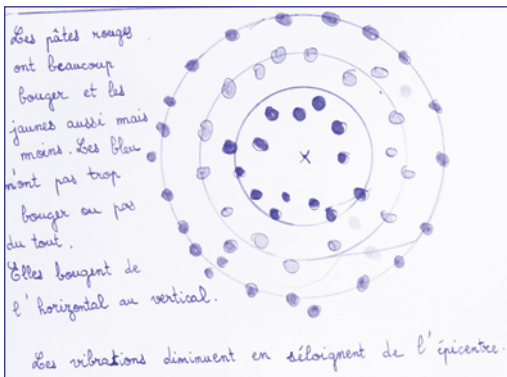 Les pâtes rouges
ont beaucoup
bouger et les
jaunes aussi mais
moins. Les bleu
n'ont pas trop
bouger ou pas
du tout.
Elles bougent de
l'horizontal au vertical.
Les vibrations diminuent en séloignent de l'épicentre.